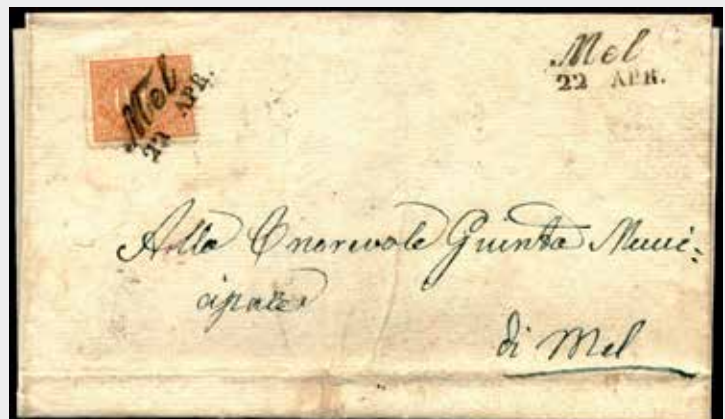 Mel
22 APR.
Mel
22 APR.
Alla Onorevole Giunta Muni-
cipale
di Mel